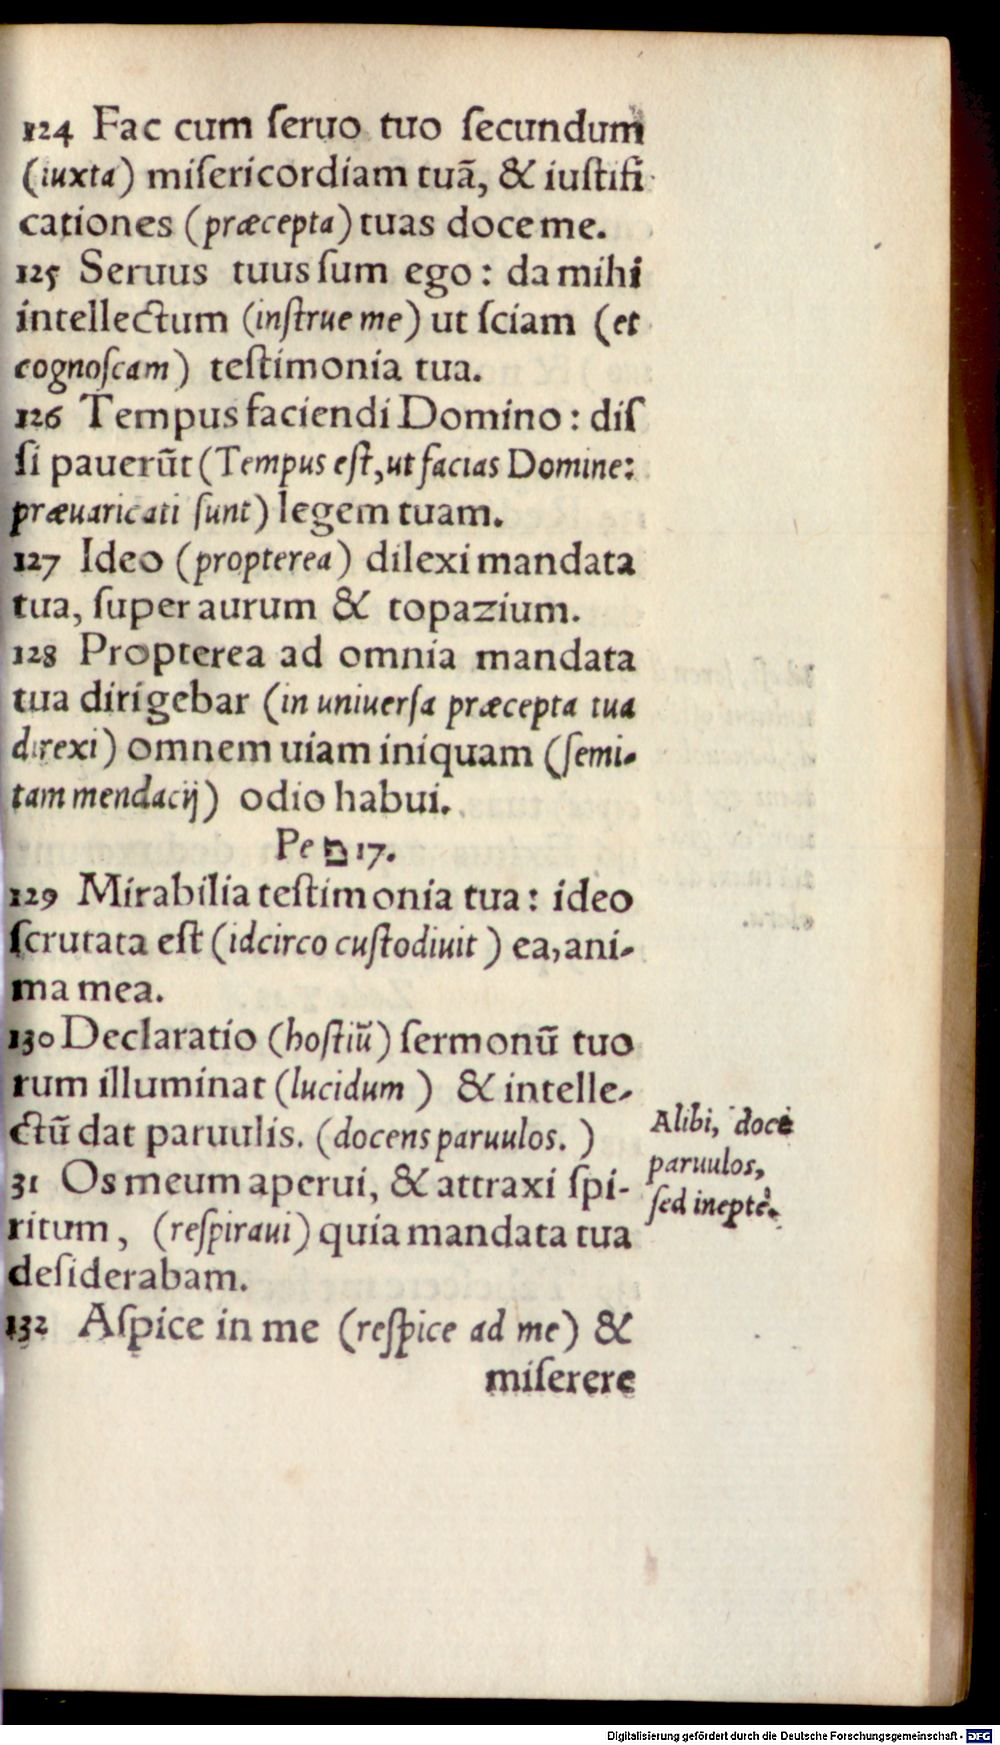 124 Fac cum ſeruo tuo ſecundum
(iuxta) miſericordiam tuã, & iuſtifi
cationes (præcepta) tuas doce me.
125 Seruus tuus ſum ego: da mihi
intellectum (inſtrue me) ut ſciam (et
cognoſcam) teſtimonia tua.
126 Tempus faciendi Domino: diſ
ſi pauerũt (Tempus eſt, ut facias Domine:
præuaricati ſunt) legem tuam.
127 Ideo (propterea) dilexi mandata
tua, ſuper aurum & topazium.
128 Propterea ad omnia mandata
tua dirigebar (in uniuerſa præcepta tua
direxi) omnem uiam iniquam (ſemi-
tam mendacij) odio habui.
Pe פ 17.
129 Mirabilia teſtimonia tua: ideo
ſcrutata eſt (idcirco cuſtodiuit) ea, ani-
ma mea.
130 Declaratio (hoſtiũ) ſermonũ tuo
rum illuminat (lucidum) & intelle-
ctũ dat paruulis. (docens paruulos.)
31 Os meum aperui, & attraxi ſpi-
ritum, (reſpiraui) quia mandata tua
deſiderabam.
132 Aſpice in me (reſpice ad me) &
miſerere
Alibi, doce
paruulos,
ſed ineptè.
Digitalisierung gefördert durch die Deutsche Forschungsgemeinschaft - DFG